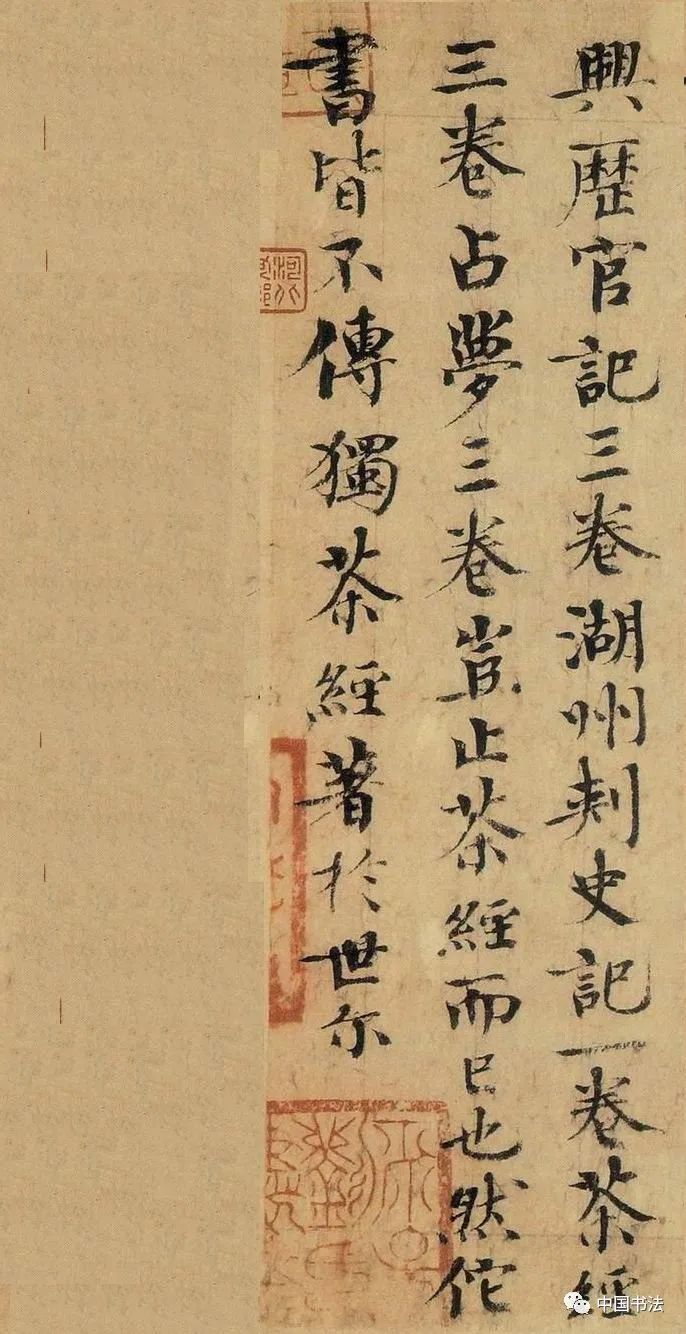 興歷官記三卷湖州刾史記一卷茶經
三卷占夢三卷豈止茶經而已也然佗
書皆不傳獨茶經著於世尓
中国书法